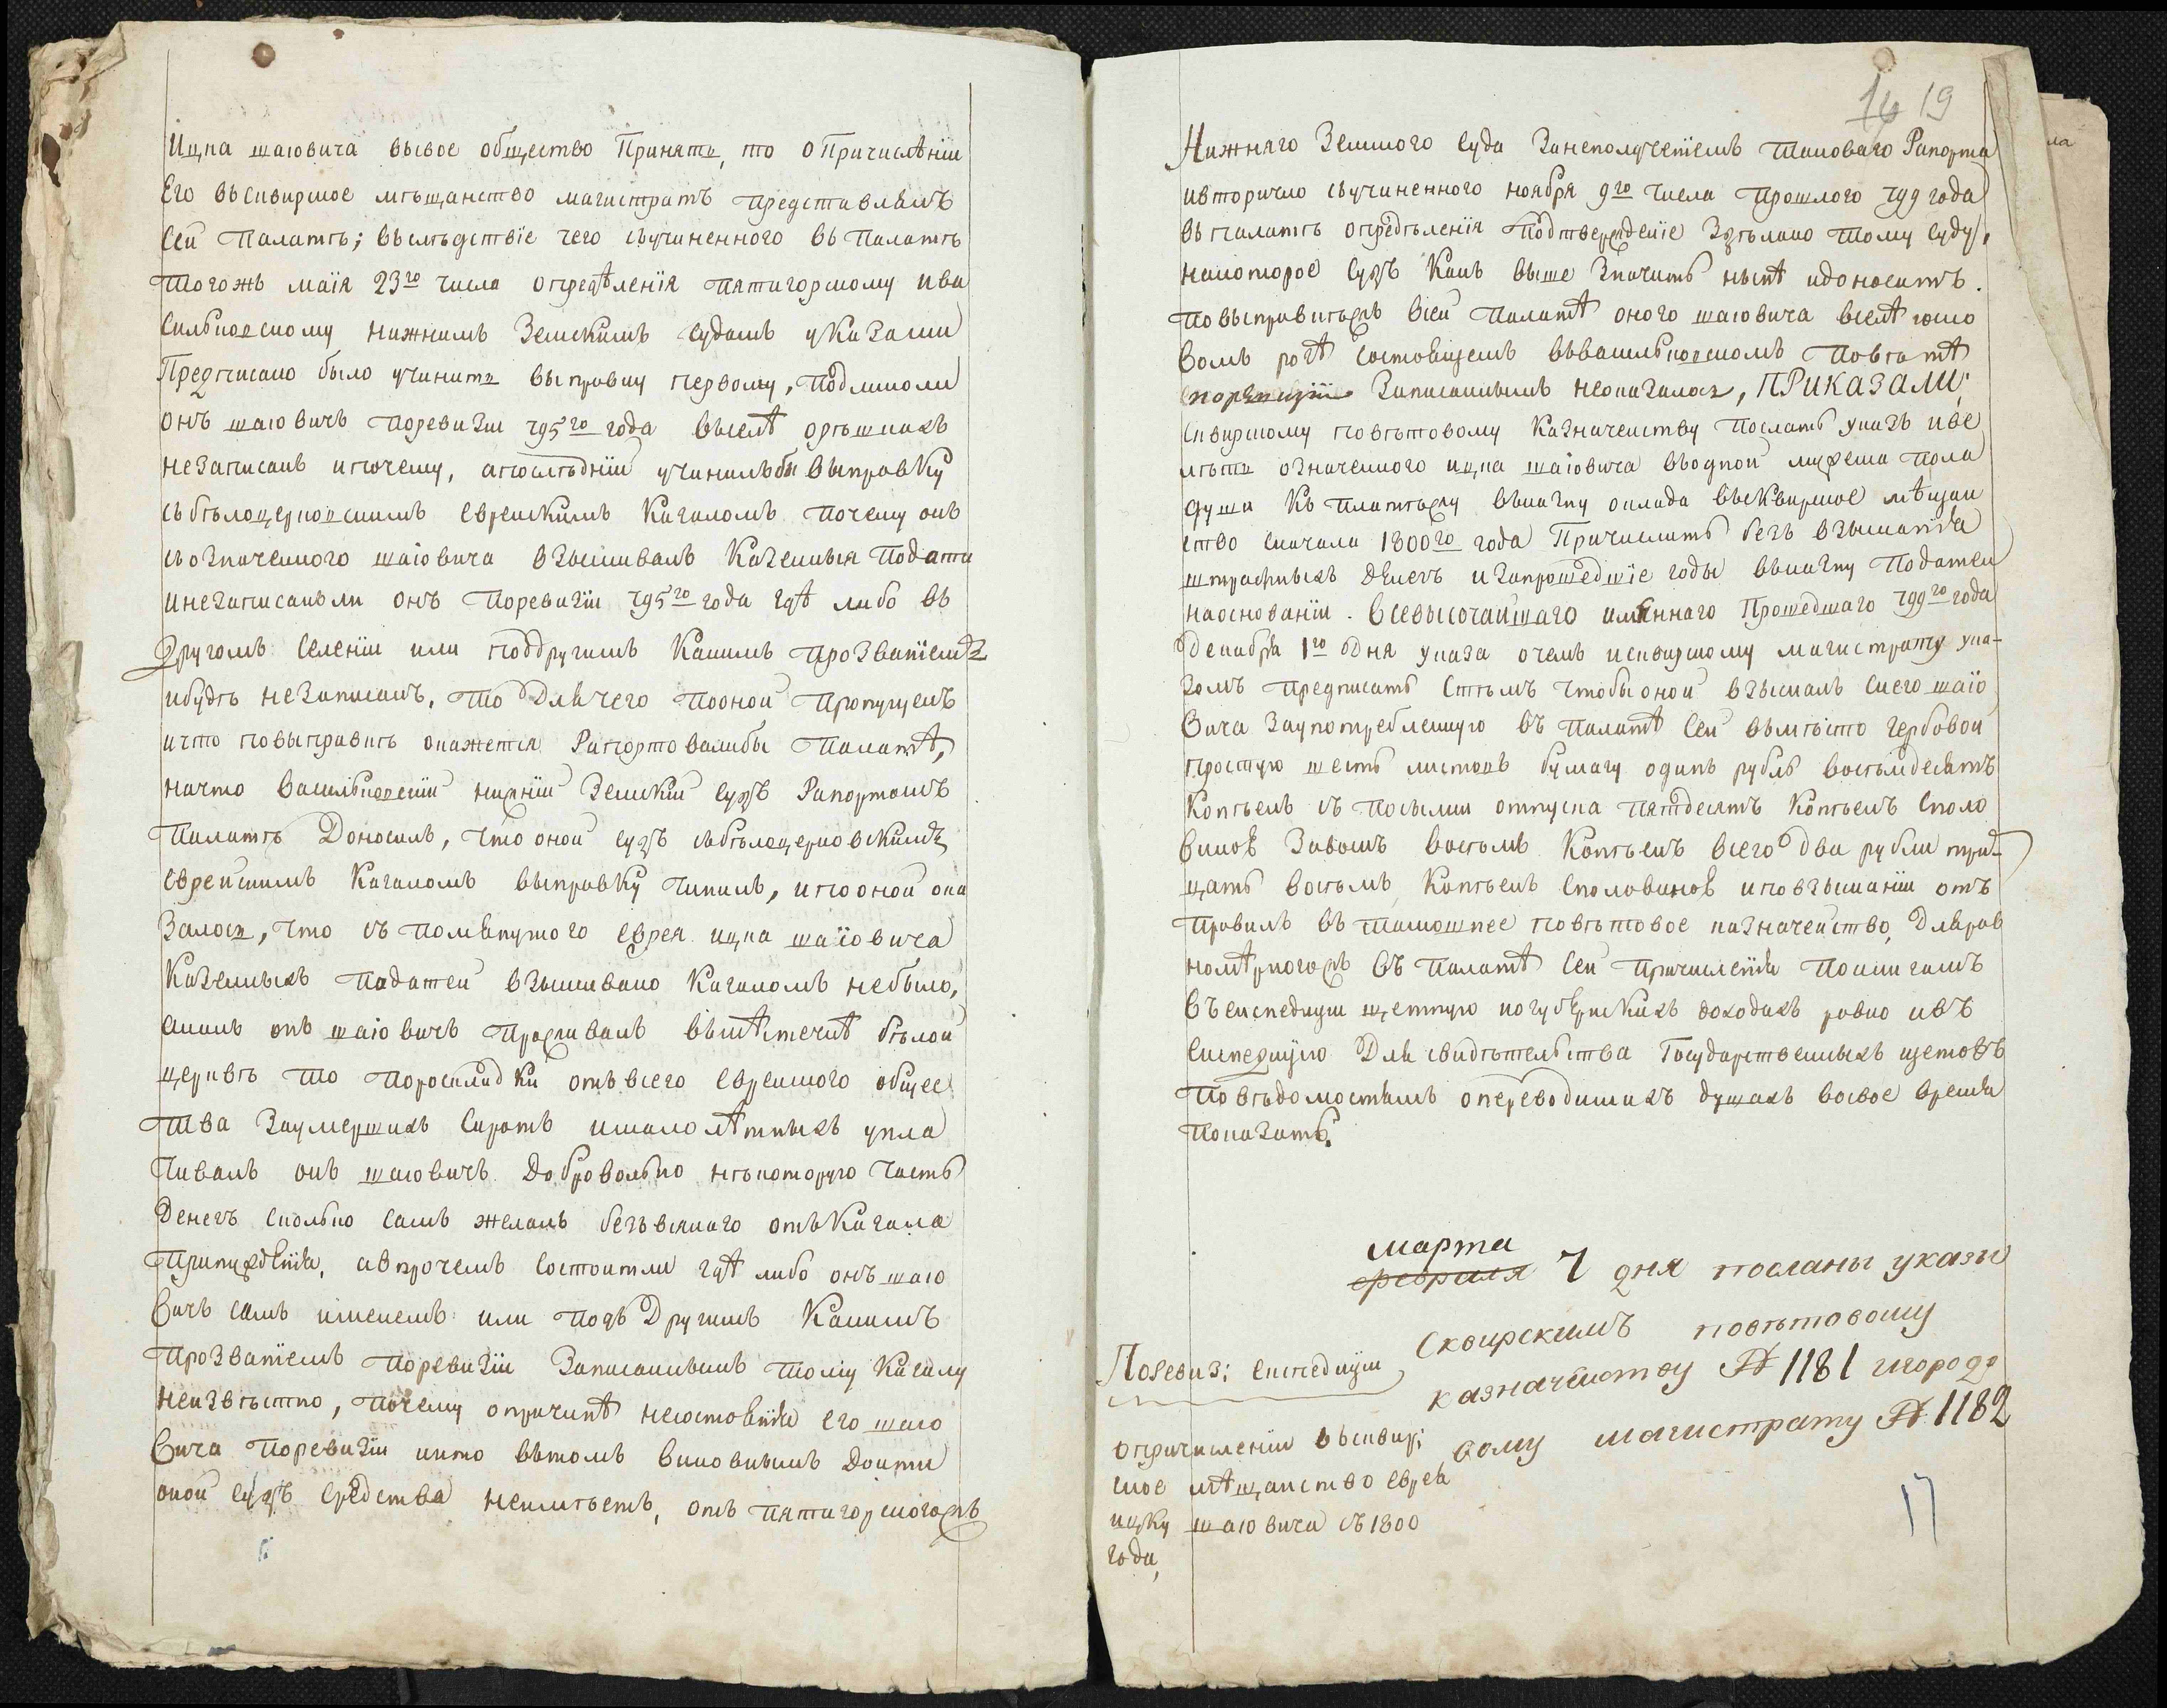 Ицка шаювича въсвое общество Принять, то опричислѣніи
Его въсквирское мѣщанство магистратъ представлялъ
сей палатѣ; въслѣдствіе чего съучиненного въ Палатѣ
тогожъ маія 23го числа определенія пятигорскому ива
силковскому нижнимъ Земскимъ судамъ указами
Предписано было учинить выправку первому, подлиноли
онъ шаювичъ поревизіи 795го года въселѣ орѣшкахъ
незаписанъ ипочему, апослѣдній учинилъбы выправку
събѣлоцерковскимъ еврейскимъ Кагаломъ почему онъ
сьозначенного шаіовича взыскивалъ Казенныя подати
инезаписанъли онъ поревизіи 795го года гдѣ либо въ
другомъ селеніи или поддругимъ Какимъ прозваніемъ
ибудѣ незаписанъ, то Длячего пооной пропущенъ
ичто повыправкѣ окажется Рапортовалибы палатѣ,
начто васильковскій нижній Земскій судъ Рапортомъ
Палатѣ Доносилъ, что оной судъ сьбѣлоцерковскимъ
еврейскимъ Кагаломъ выправку чинилъ, ипооной ока
залось, что съ помянутого еврея ицка шаіовича
Казенныхъ податей взыскивано Кагаломъ небыло,
акакъ онъ шаіовичъ проживалъ въмѣстечкѣ бѣлой
церквѣ то пороскладки отъвсего еврейского общес
тва заумершихъ сиротъ ималолѣтныхъ упла
чивалъ онъ шаювичъ добровольно нѣкоторую часть
денегъ сколько самъ желалъ безъвсякого отъКагала
принужденія, авпрочемъ состоитли гдѣ либо онъ шаю
вичъ симъ именемъ или подъ Другимъ Какимъ
Прозваніемъ поревизіи Записаннымъ тому Кагалу
неизвѣстно, почему опричинѣ несостоянія его шаю
вича поревизіи икто вьтомъ виновнымъ дойти
оной судъ средства неимѣетъ, отъ пятигорскогожъ

16 19
Нижняго Земского суда Занеполученіемъ таковаго Рапорта
ивторично съучиненного ноября 9го числа прошлого 799 года
въпалатѣ определенія подтвержденіе Здѣлано тому суду,
накоторое судъ Какъ выше Значитъ нынѣ идоноситъ.
Повыправкѣжъ всей палатѣ оного шаювича вселѣ
состоящемъ въвасильковскомъ повѣтѣ
Записаннымъ неоказалось, ПРИКАЗАЛИ:
Сквирскому повѣтовому Казначейству Послать указъ иве
лѣть означенного ицка шаіовича водной мужеска пола
души Къ платежу въказну оклада въсквирское мѣщан
ство сначала 1800го года Причислить безъ взысканія
штрафныхъ денегъ изапрошедшіе годы въказну податей
наоснованіи Всевысочайшаго имяннаго Прошедшаго 799го года
декабря 1го дня указа очемъ исквирскому магистрату ука-
зомъ предписать стѣмъ чтобы оной взыскалъ снего шаіо
вича заупотребленную въ палатѣ сей вьмѣсто гербовой
простую шесть листовъ бумагу одинъ рубль восѣмдесятъ
Копѣекъ съ посылки отпуска пятдесятъ Копѣекъ споло
виною Завошъ восѣмъ Копѣекъ всего два рубли трид
цать восѣмъ Копѣекъ сполавиною иповзысканіи отъ
правилъ въ тамошнее повѣтовое казначейство, Дляров
номѣрногожъ въ палатѣ сей причисленія покнигамъ
въекспедиціи щетную погубернскихъ доходахъ ровно ивъ
експедицію Для свидѣтельства Государственныхъ щетовъ
повѣдомостямъ опереводимыхъ душахъ восвое время
показать.

марта
февраля 7 дня посланы указы
Сквирскимъ повѣтовому
казначейству № 1181 игородо
вому магистрату № 1182

Поревиз: експедиціи
опричисленіи въсквир:
ское мѣщанство еврея
ицку шаювича съ 1800
года,
17